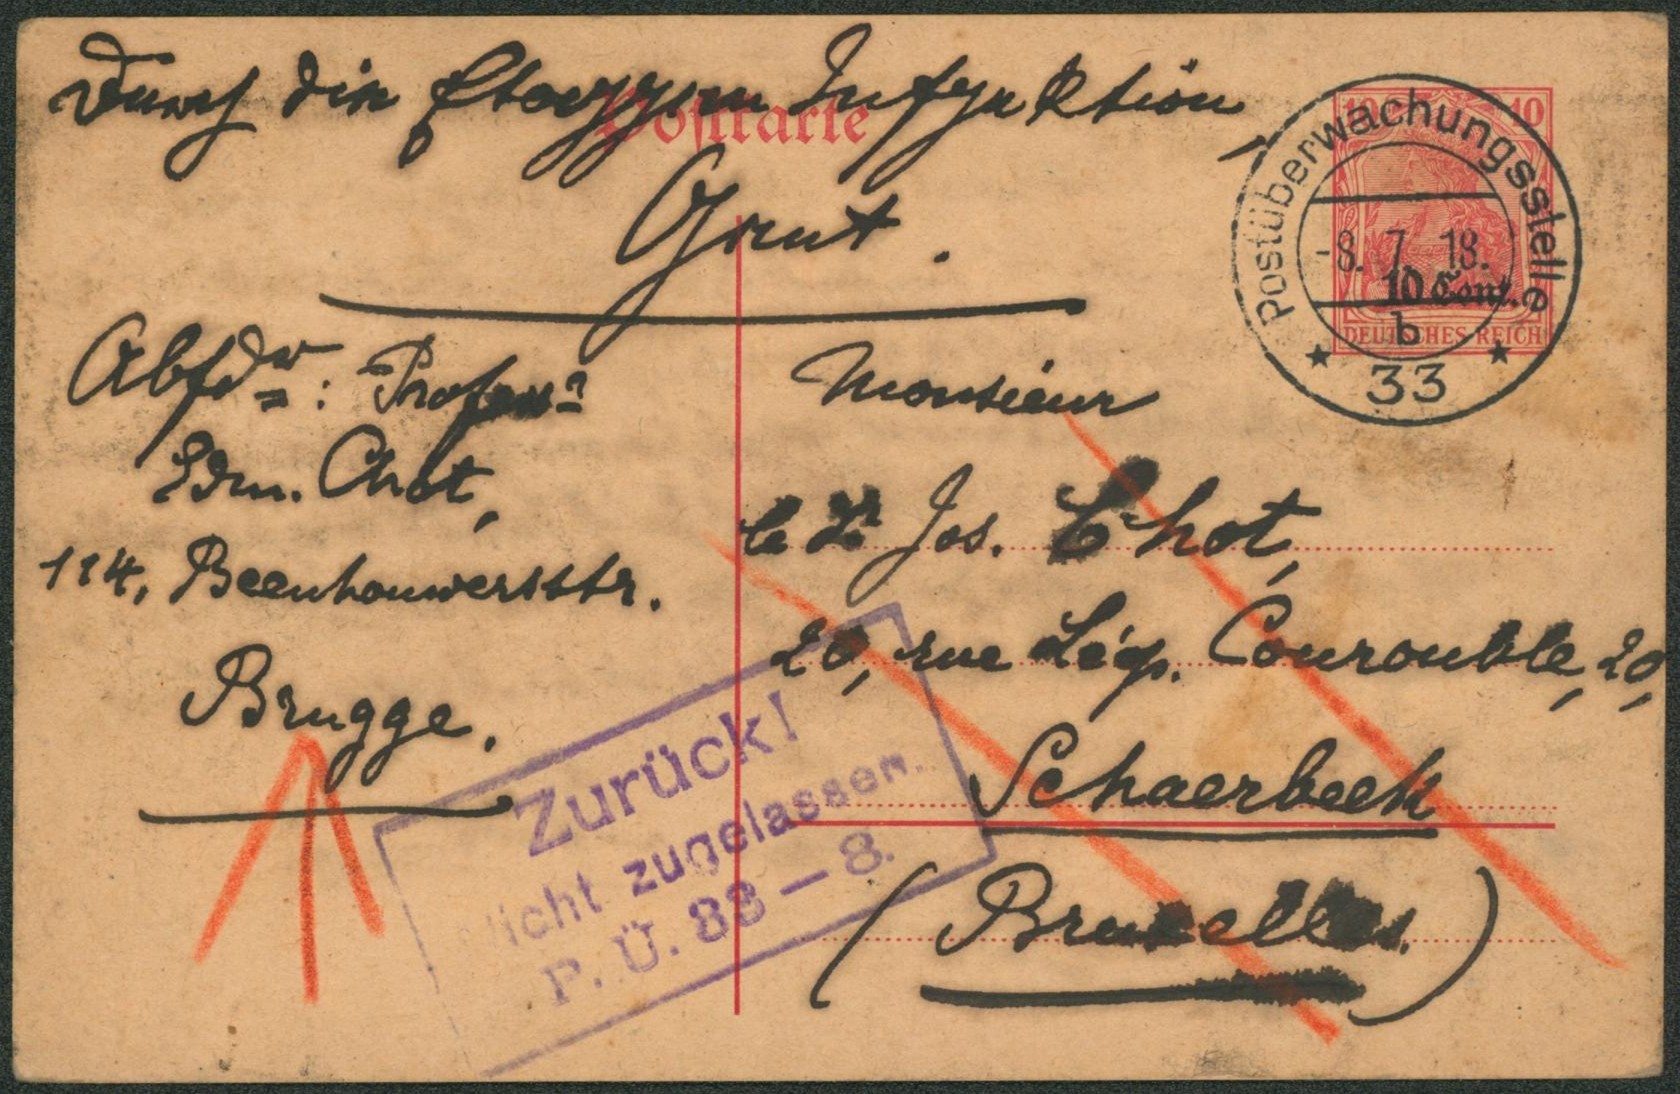 Durch die Etappen Inspektion,
Postkarte
Gent.
10 10
Postüberwachungsstelle
-8. 7. 18.
10 Cent.
DEUTSCHES REICH
b
33
Absdr: Professr
Edm. Chot,
114, Beenhouwersstr.
Brugge.
Monsieur
le Dr Jos. Chot,
20, rue Léop. Courouble, 20,
Schaerbeek
(Bruxelles.)
Zurück!
Nicht zugelassen.
P. Ü. 33 — 8.